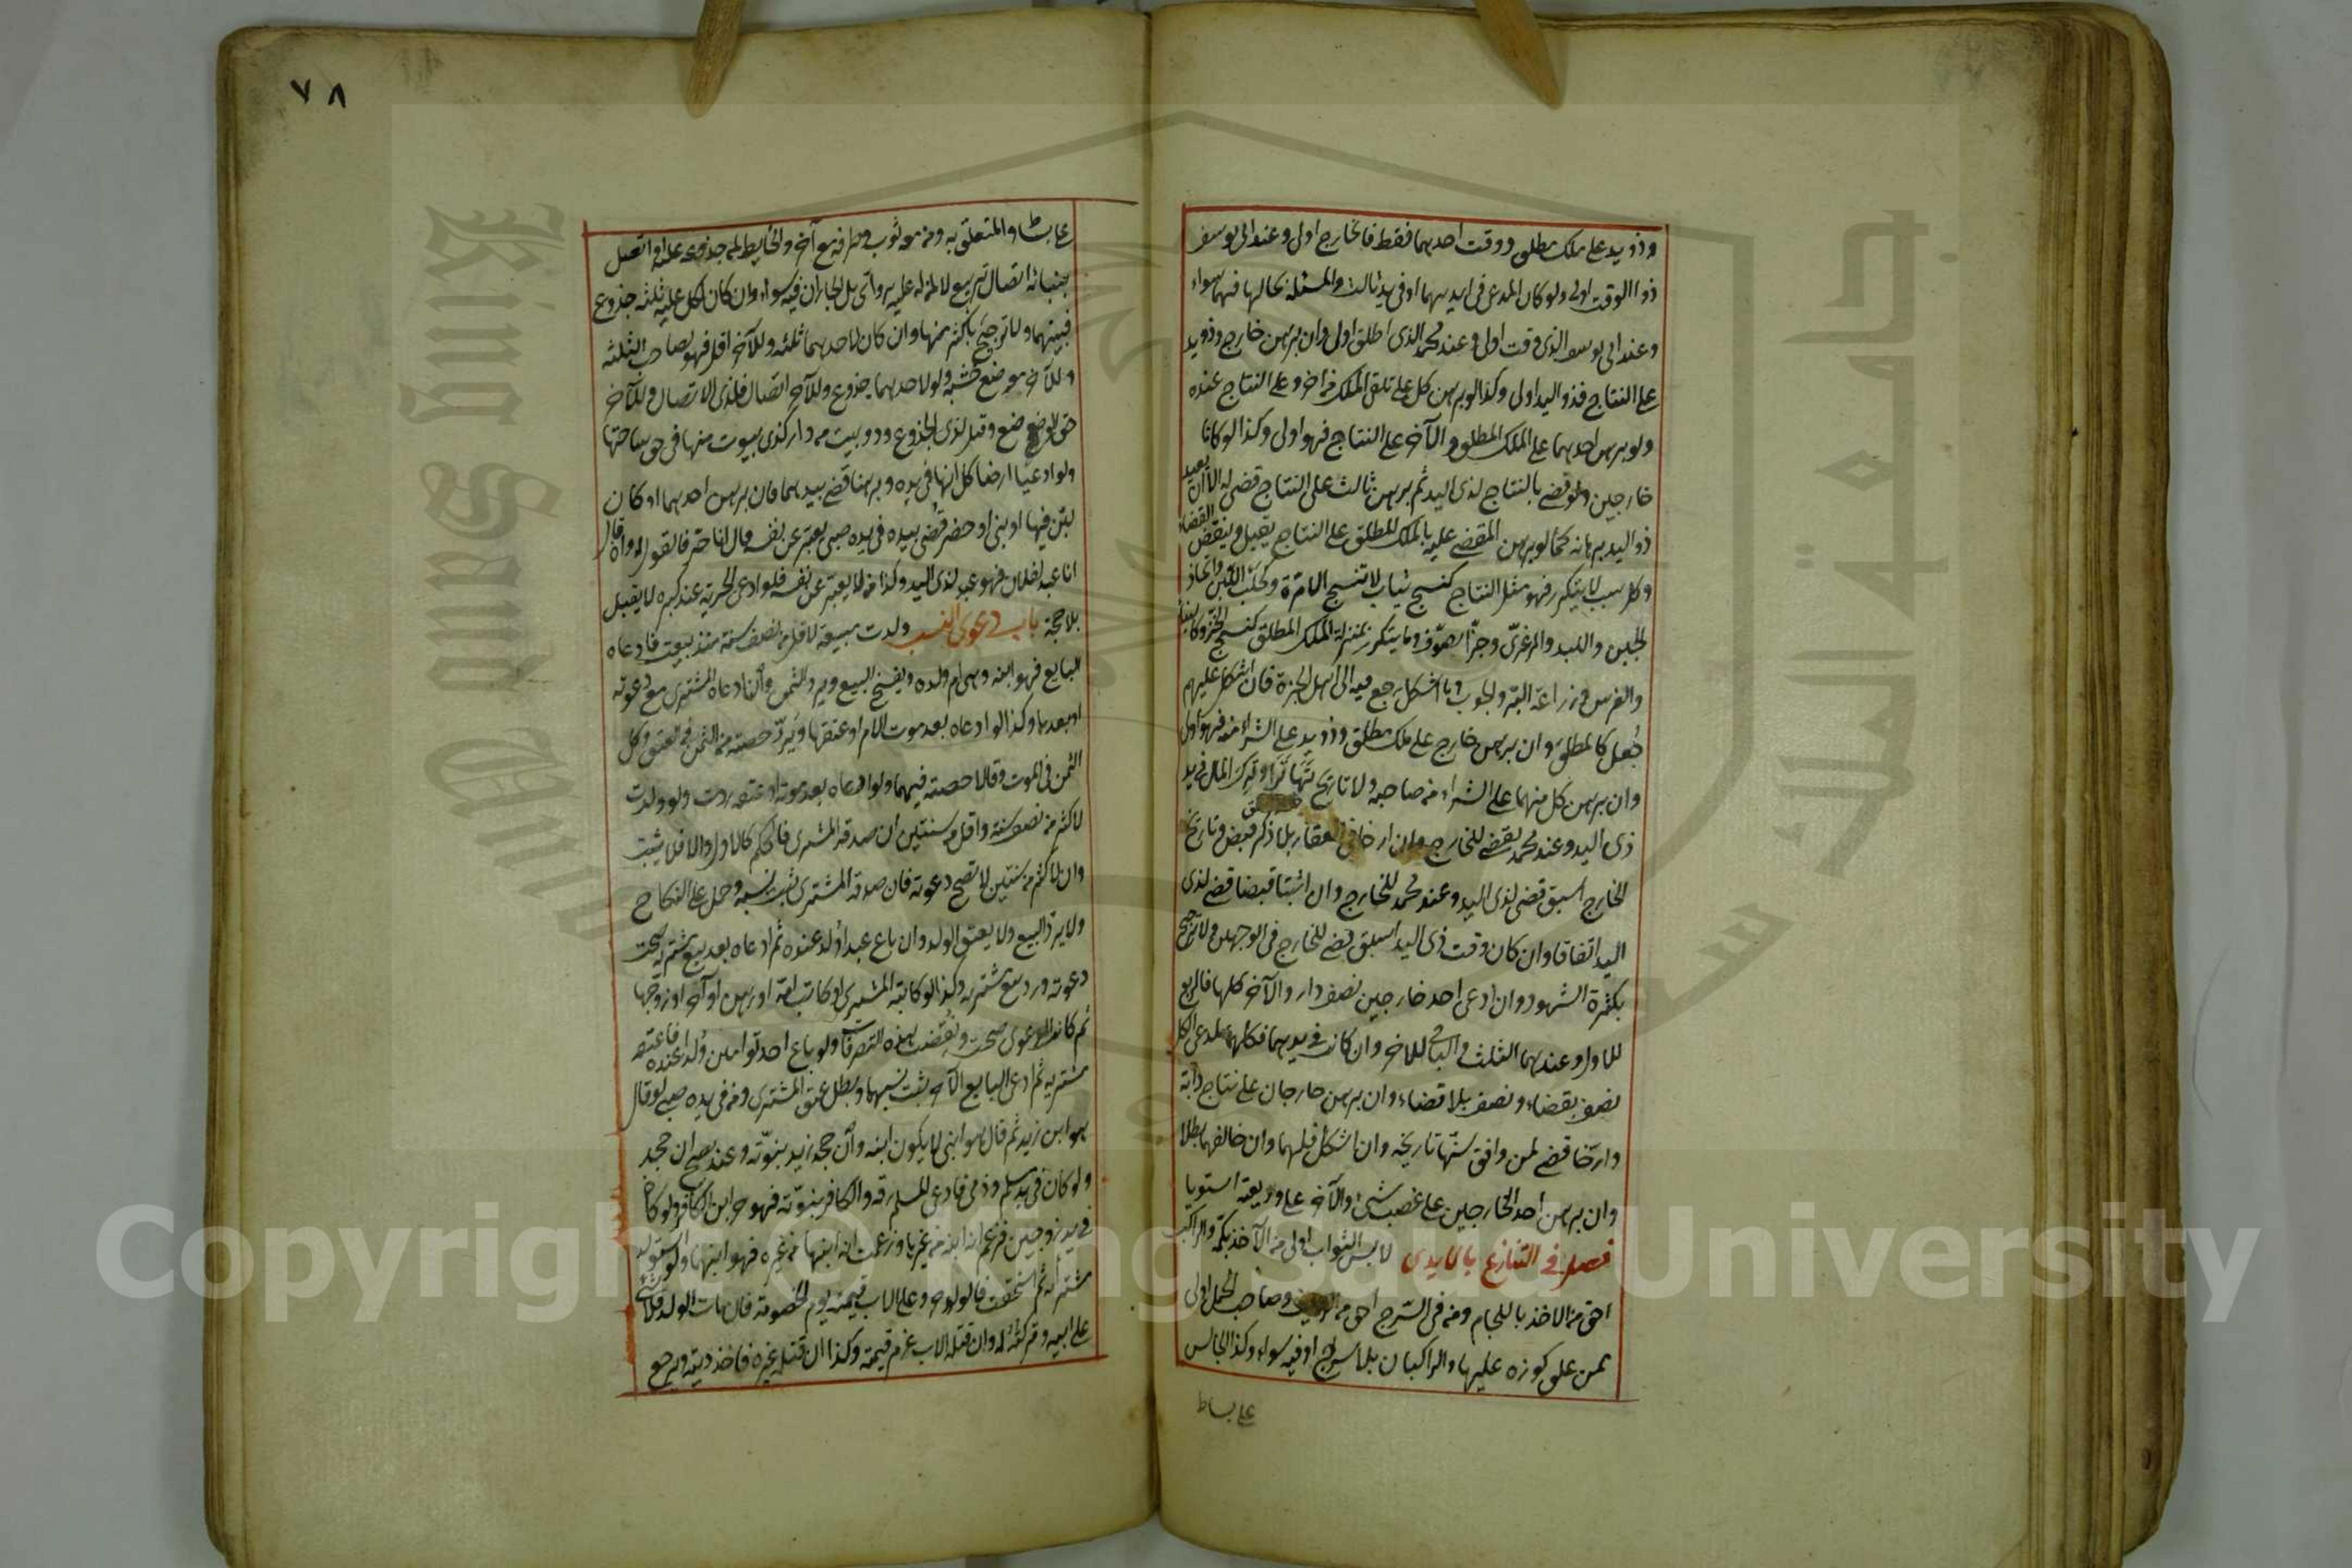 وذو يد على ملك مطلق ووقت احدهما فقط فالخارج اولى وعند ابى يوسف
ذو الوقت اولى ولو كان المدعى فى ايديهما او فى يد ثالث والمسئلة بحالها فهما سواء
وعند ابى يوسف الذى وقت اولى وعند محمد الذى اطلق اولى وان برهن خارج وذو يد
على النتاج فذو اليد اولى وكذا لو برهن كل على تلقى الملك من آخر وعلى النتاج عنده
ولو برهن احدهما على الملك المطلق والآخر على النتاج فهو اولى وكذا لو كانا
خارجين ولو قضى بالنتاج لذى اليد ثم برهن ثالث على النتاج قضى له الا ان يعيد
ذو اليد برهانه كما لو برهن المقضى عليه بالملك المطلق على النتاج يقبل وينقض القضاء
وكل سبب لا يتكرر فهو مثل النتاج كنسج ثياب لا تنسج الا مرة وكحلب اللبن واتخاذ
الجبن واللبد والمرعزى وجز الصوف وما يتكرر بمنزلة الملك المطلق كنسج الخز وكالبناء
والغرس وزراعة البر والحبوب وما اشكل يرجع فيه الى اهل الخبرة فان اشكل عليهم
جعل كالمطلق وان برهن خارج على ملك مطلق وذو يد على الشراء منه فهو اولى
وان برهن كل منهما على الشراء من صاحبه ولا تاريخ تهاترا وترك المال فى يد
ذى اليد وعند محمد يقضى للخارج وان ارخا فى العقار بلا ذكر قبض وتاريخ
الخارج اسبق قضى لذى اليد وعند محمد للخارج وان اثبتا قبضا قضى لذى
اليد اتفاقا وان كان وقت ذى اليد اسبق قضى للخارج فى الوجهين ولا ترجيح
بكثرة الشهود وان ادعى احد خارجين نصف دار والآخر كلها فالربع
للاول وعندهما الثلث والباقى للآخر وان كانت فى يديهما فكلها لمدعى الكل
نصف بقضاء ونصف بلا قضاء وان برهن خارجان على نتاج دابة
وارخا قضى لمن وافق سنها تاريخه وان اشكل فلهما وان خالفهما بطلا
وان برهن احد الخارجين على غصب شئ والآخر على وديعته استويا
فصل فى التنازع بالايدى لابس الثوب اولى من الآخذ بكمه والراكب
احق من الآخذ باللجام ومن فى السرج احق من الرديف وصاحب الحمل اولى
ممن علق كوزه عليها والراكبان بلا سرج او فيه سواء وكذا الجالس
على بساط
٧٨
على بساط والمتعلق به ومن معه ثوب وطرفه مع آخر والحائط لمن جذوعه عليه او اتصل
ببنائه اتصال تربيع لا لمن له عليه هرادى بل الجاران فيه سواء وان كان لكل عليه ثلثة جذوع
فبينهما ولا ترجيح باكثر منها وان كان لاحدهما ثلثة وللآخر اقل فهو لصاحب الثلثة
وللآخر موضع خشبه ولو لاحدهما جذوع وللآخر اتصال فلذى الاتصال وللآخر
حق الوضع وقيل لذى الجذوع وذو بيت من دار كذى بيوت منها فى حق ساحتها
ولو ادعيا ارضا كل انها فى يده وبرهنا قضى بيدهما فان برهن احدهما او كان
لبن فيها او بنى او حفر قضى بيده فى يده صبى يعبر عن نفسه قال انا حر فالقول له وان قال
انا عبد لفلان فهو عبد لذى اليد وكذا من لا يعبر عن نفسه فلو ادعى الحرية عند كبره لا يقبل
بلا حجة باب دعوى النسب ولدت مبيعة لاقل من نصف سنة منذ بيعت فادعاه
البايع فهو ابنه وهى ام ولده ويفسخ البيع ويرد الثمن وان ادعاه المشترى مع دعوته
او بعدها وكذا لو ادعاه بعد موت الام او عتقها ويرد حصته من الثمن فى العتق وكل
الثمن فى الموت وقالا حصته فيهما ولو ادعاه بعد موته او عتقه ردت ولو ولدت
لاكثر من نصف سنة واقل من سنتين ان صدقه المشترى فالحكم كالاول والا فلا يثبت
وان لاكثر من سنتين لا تصح دعوته فان صدقه المشترى ثبت نسبه وحمل على النكاح
ولا يرد البيع ولا يعتق الولد وان باع عبدا ولد عنده ثم ادعاه بعد بيع مشتريه صحت
دعوته ورد بيع مشتريه وكذا لو كاتبه المشترى او كاتب امه او رهن او آجر او زوجها
ثم كانت الدعوى صحت ونقضت هذه التصرفات ولو باع احد توأمين ولدا عنده فاعتقه
مشتريه ثم ادعى البايع الآخر يثبت نسبهما وبطل عتق المشترى ومن فى يده صبى لو قال
هو ابن زيد ثم قال هو ابنى لا يكون ابنه وان جحد زيد بنوته وعندهما يصح ان جحد
ولو كان فى يد مسلم وذمى فادعى المسلم رقه والكافر بنوته فهو حر ابن الكافر ولو كان
فى يد زوجين فزعم انه ابنه من غيرها وزعمت انه ابنها من غيره فهو ابنهما ولو استولد
مشتراه ثم استحقت فالولد حر وعلى الاب قيمته يوم الخصومة فان مات الولد فلا شئ
على ابيه وتركته له وان قتله الاب غرم قيمته وكذا ان قتله غيره فاخذ ديته ويرجع
Copyright © King Saud University
جامعة الملك سعود
King Saud University